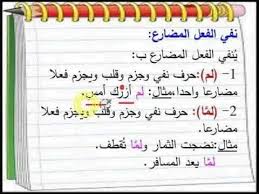 نفي الفعل المضارع:
يُنفي الفعل المضارع ب:
1- (لم): حرف نفي وجزم وقلب ويجزم فعلا
مضارعا واحدا،مثال: لم أزرك أمس.
2- (لمّا): حرف نفي وجزم وقلب ويجزم فعلا
مضارعا.
مثال: نضجت الثمار ولمّا تُقطف.
لمّا يعد المسافر.